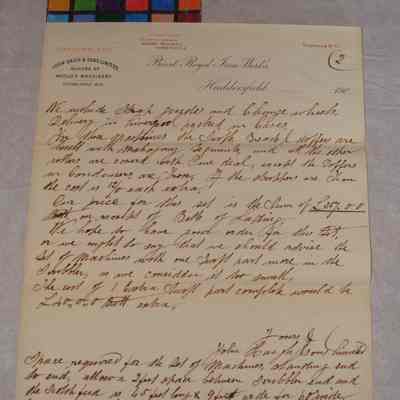 JOHN HAIGH & SONS LIMITED,
MAKERS OF
WOOLLEN MACHINERY
Priest Royd Iron Works,
Huddersfield, 190
2
We include Strap guides and Change wheels
Delivery in Liverpool packed in Cases.
For these Machines the Swift Breast & doffer are
lagged with Mahogany segments and all the other
rollers are covered with Pine deal, except the doffers
in Condensers are Iron. If the doffers are Iron
the cost is each extra.
Our price for this set is the Sum of
on receipt of Bill of Lading.
We hope to have your order for this set,
or we might to say that we should advise the
Set of Machines with one Swift part more in the
Scribbler, as we consider it too small,
The cost of 1 extra Swift part complete would be
£40.0.0 extra.
Yours
John Haigh & Sons Limited
Space required for the Set of Machines, standing end
to end, allow a 3 feet space between Scribbler end and
the Scotch feed is 65 feet long x 9 feet wide for